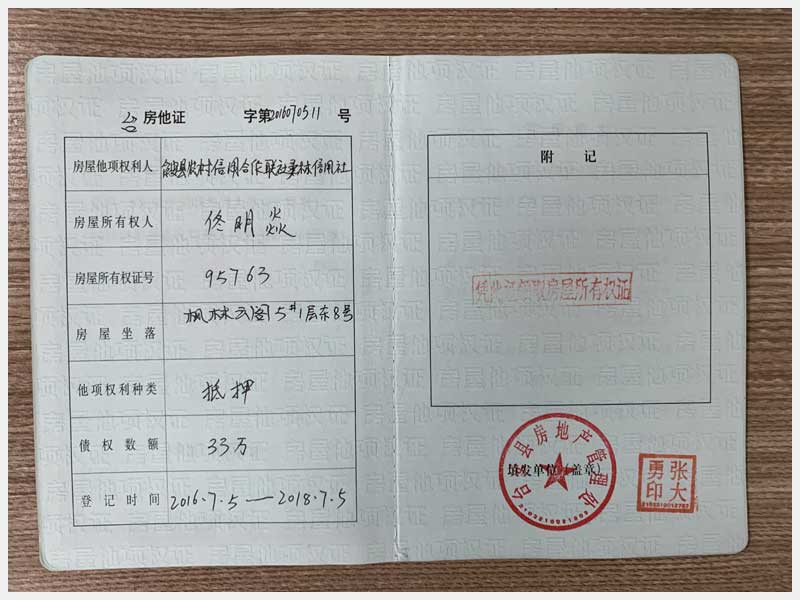 台 房他证 字第2016070511 号
房屋他项权利人 台安县农村信用合作联社桑林信用社
房屋所有权人 佟明焱
房屋所有权证号 95763
房屋坐落 枫林云阁5#1层东8号
他项权利种类 抵押
债权数额 33万
登记时间 2016.7.5—2018.7.5
附记
凭此证领取房屋所有权证
填发单位(盖章)
县房地产管理处
张大勇印